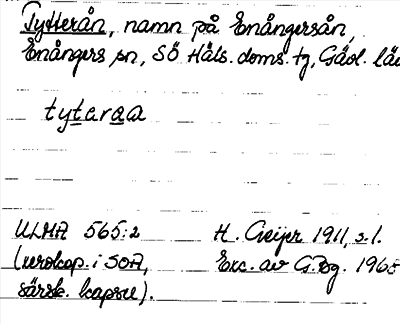 Tytterån, namn på Enångersån,
Enångers sn, SÖ Häls. doms. tg, Gävl. län
tyteraa
ULMA 565:2 H. Geijer 1911, s. 1.
i SOA, Exc. av G. Bg. 1965
särsk. kapsel).